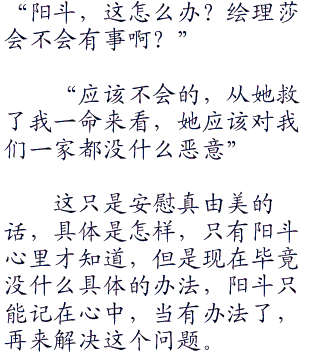 “阳斗，这怎么办？绘理莎
会不会有事啊？”
“应该不会的，从她救
了我一命来看，她应该对我
们一家都没什么恶意”
这只是安慰真由美的
话，具体是怎样，只有阳斗
心里才知道，但是现在毕竟
没什么具体的办法，阳斗只
能记在心中，当有办法了，
再来解决这个问题。